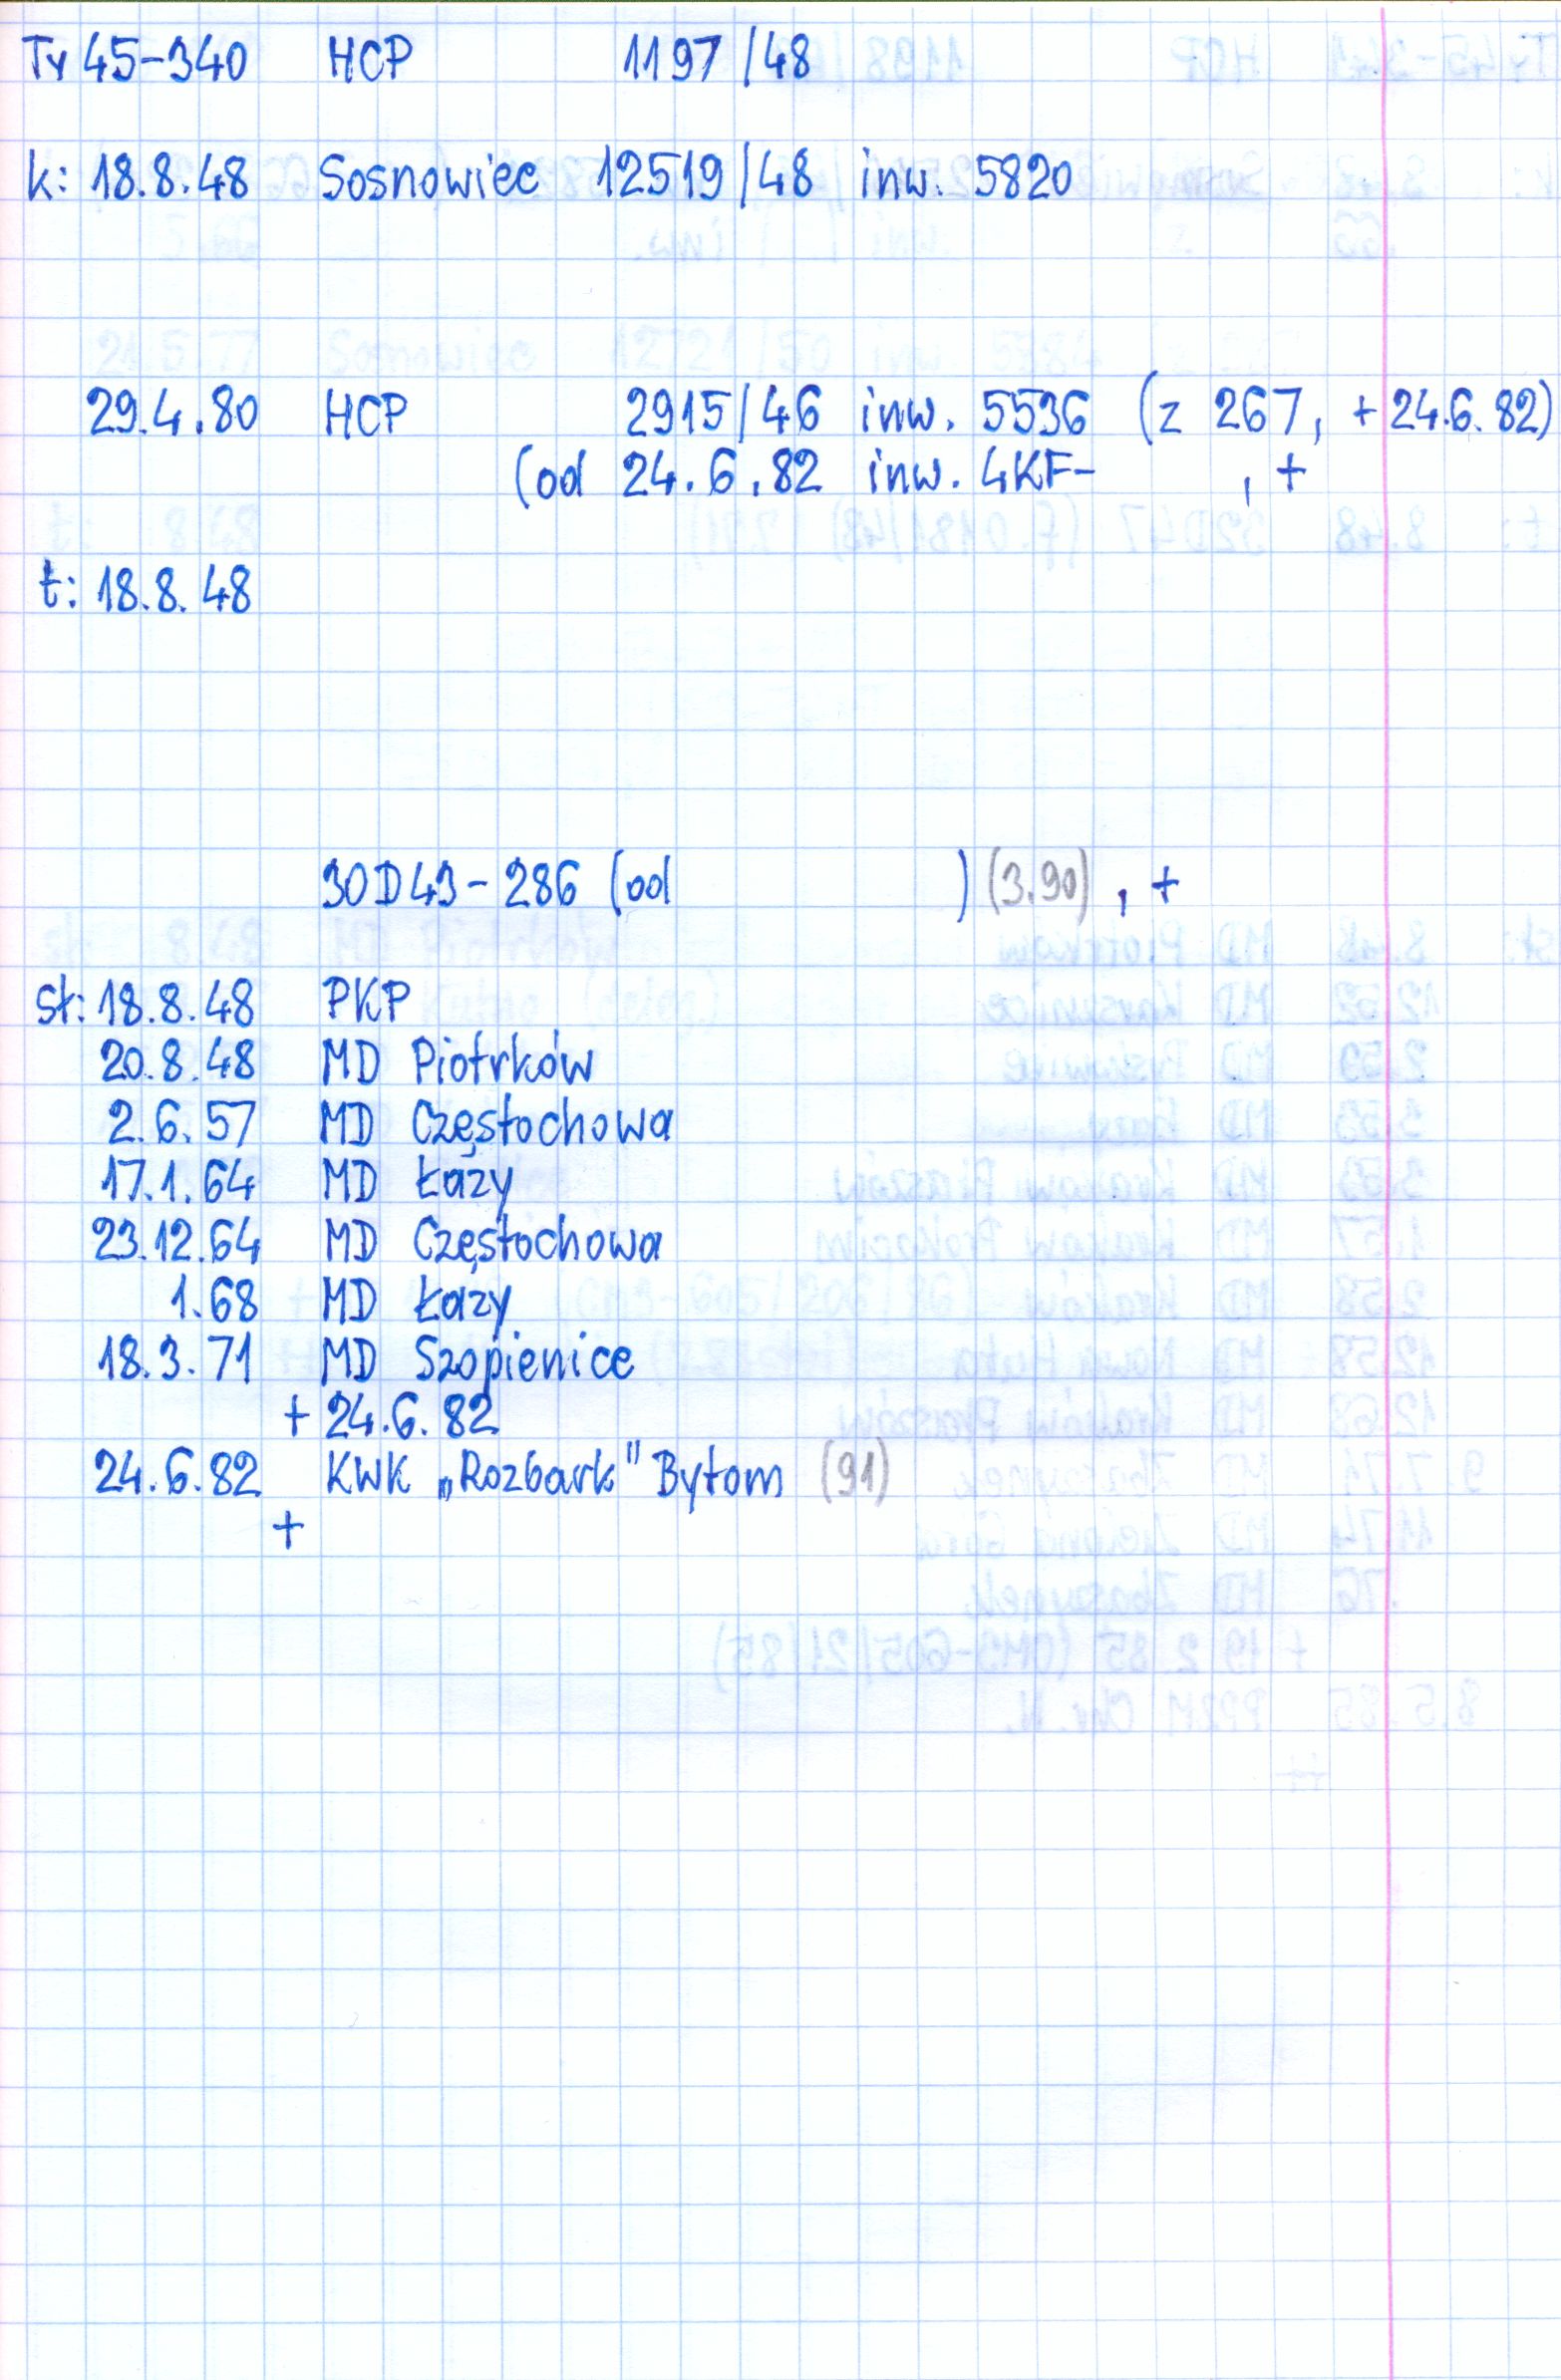 Ty 45-340 HCP 1197/48
k: 18.8.48 Sosnowiec 12519/48 inw. 5820
29.4.80 HCP 2915/46 inw. 5536 (z 267, + 24.6.82)
(od 24.6.82 inw. 4KF- , +
t: 18.8.48
30D43-286 (od ) (3.90), +
st: 18.8.48 PKP
20.8.48 MD Piotrków
2.6.57 MD Częstochowa
17.1.64 MD Łazy
23.12.64 MD Częstochowa
1.68 MD Łazy
18.3.71 MD Szopienice
+ 24.6.82
24.6.82 KWK „Rozbark" Bytom (91)
+